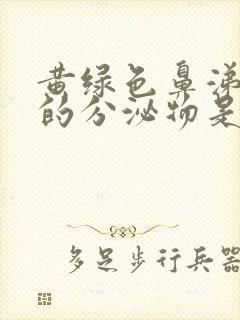 黄绿色鼻涕
的分泌物是
多足步行兵器